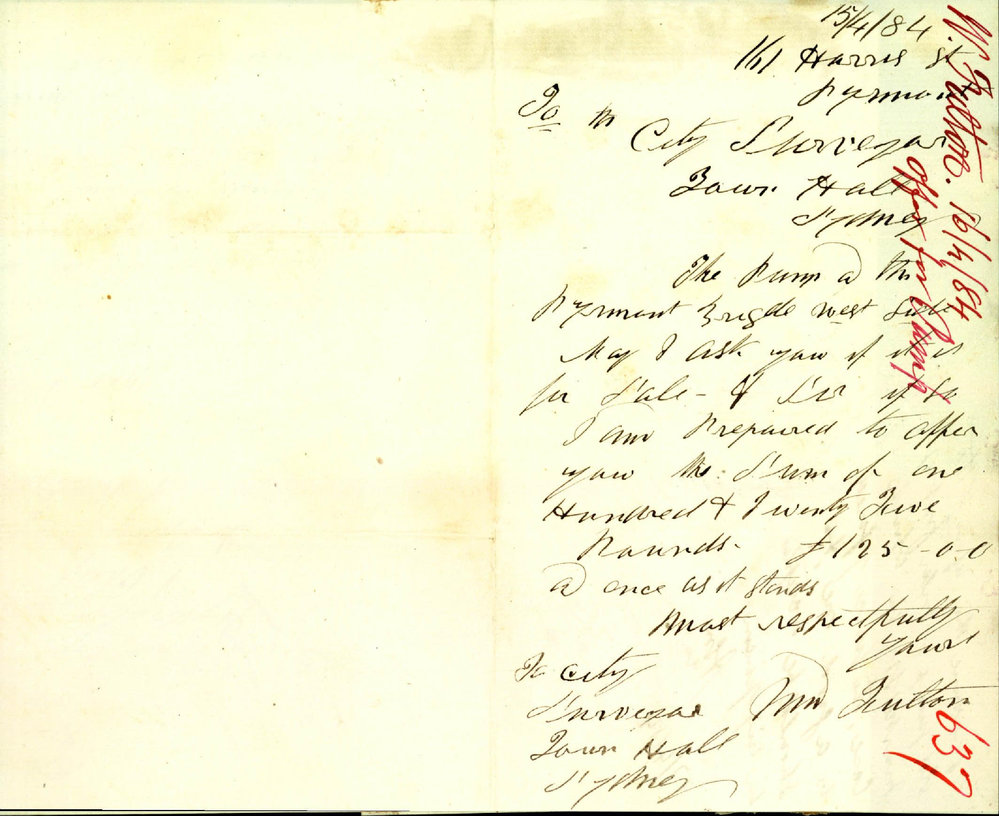 15/4/84
161 Harris St
Pyrmont
To the
City Surveyor
Town Hall
Sydney
The Pump @ the
Pyrmont Brigde West Side
May I ask yow if it is
for Sale - & Sir if so
I am Prepaired to offer
yow the Sum of one
Hundred & Twenty Five
Pounds. £125-0-0
@ once as it stands
Most respectfully
Yours
Wm Fulton
To City
Surveyor
Town Hall
Sydney
W. Fulton. 16/4/84
Offer for Pump
637